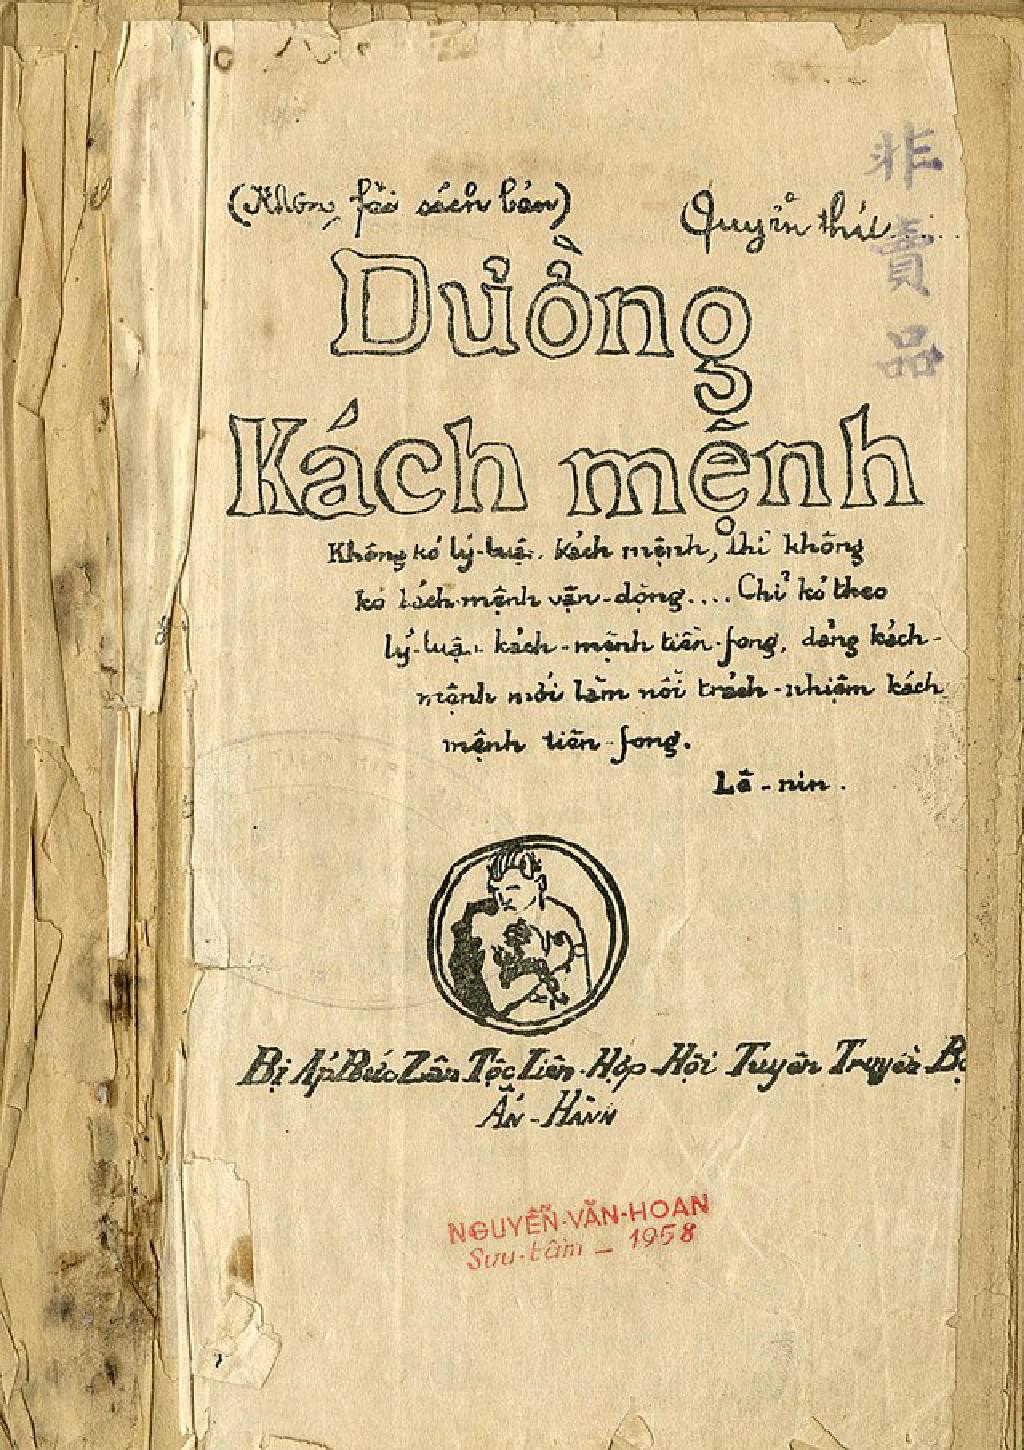 (Không fải sách bán)
Quyển thứ.....
非賣品
Dưồng
Kách mệnh
Không kó lý-luận kách mệnh, thì không
kó kách-mệnh vận-dộng.... Chỉ kó theo
lý-luận kách-mệnh tiền-fong, dảng kách-
mệnh mới làm nỗi trách-nhiệm kách
mệnh tiền-fong.
Lê-nin.
Bị Áp Bức Zân Tộc Liên-Hợp Hội Tuyên Truyền Bộ
Ấn-Hành
NGUYỄN-VĂN-HOAN
Sưu-tầm – 1958